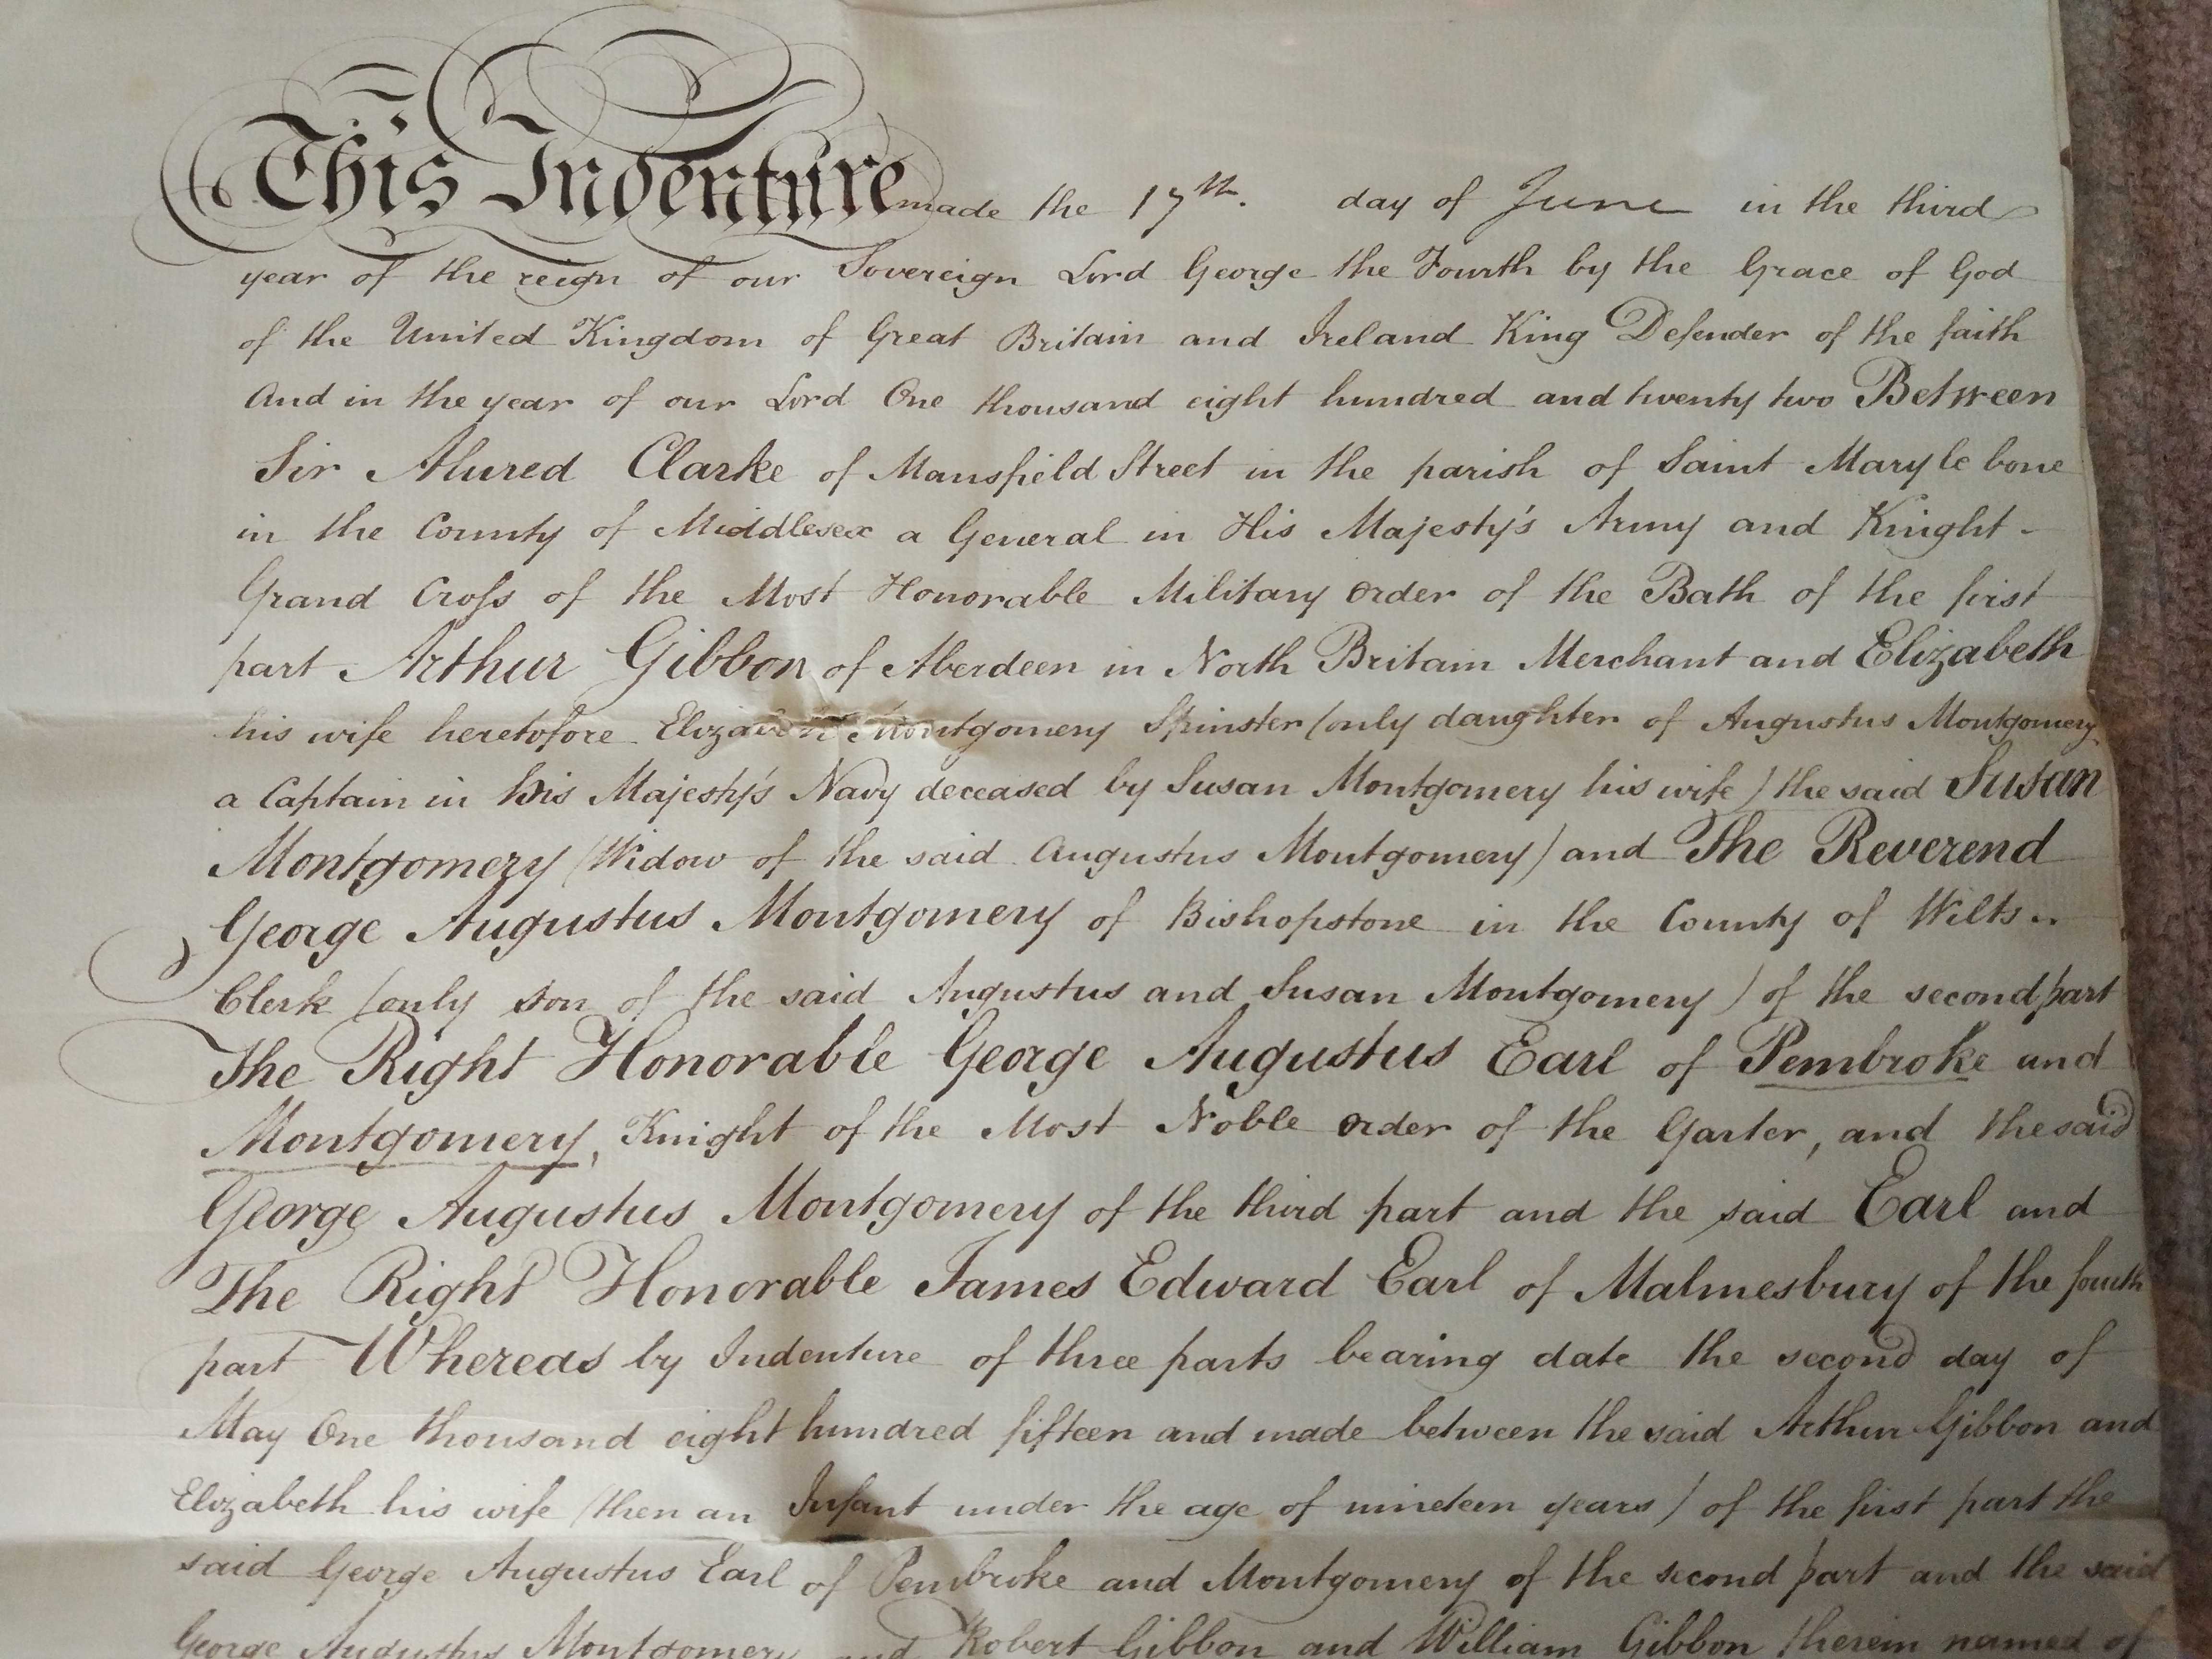 This Indenture made the 17th. day of June in the third
year of the reign of our Sovereign Lord George the Fourth by the Grace of God
of the United Kingdom of Great Britain and Ireland King Defender of the faith
And in the year of our Lord One thousand eight hundred and twenty two Between
Sir Alured Clarke of Mansfield Street in the parish of Saint Mary le bone
in the County of Middlesex a General in His Majesty's Army and Knight -
Grand Croſs of the Most Honorable Military Order of the Bath of the first
part Arthur Gibbon of Aberdeen in North Britain Merchant and Elizabeth
his wife heretofore Elizabeth Montgomery Spinster (only daughter of Augustus Montgomery
a Captain in His Majesty's Navy deceased by Susan Montgomery his wife) the said Susan
Montgomery (Widow of the said Augustus Montgomery) and The Reverend
George Augustus Montgomery of Bishopstone in the County of Wilts
Clerk (only son of the said Augustus and Susan Montgomery) of the second part
The Right Honorable George Augustus Earl of Pembroke and
Montgomery, Knight of the Most Noble Order of the Garter, and the said
George Augustus Montgomery of the third part and the said Earl and
The Right Honorable James Edward Earl of Malmesbury of the fourth
part Whereas by Indenture of three parts bearing date the second day of
May One thousand eight hundred fifteen and made between the said Arthur Gibbon and
Elizabeth his wife (then an Infant under the age of nineteen years) of the first part the
said George Augustus Earl of Pembroke and Montgomery of the second part and the said
George Augustus Montgomery and Robert Gibbon and William Gibbon therein named of